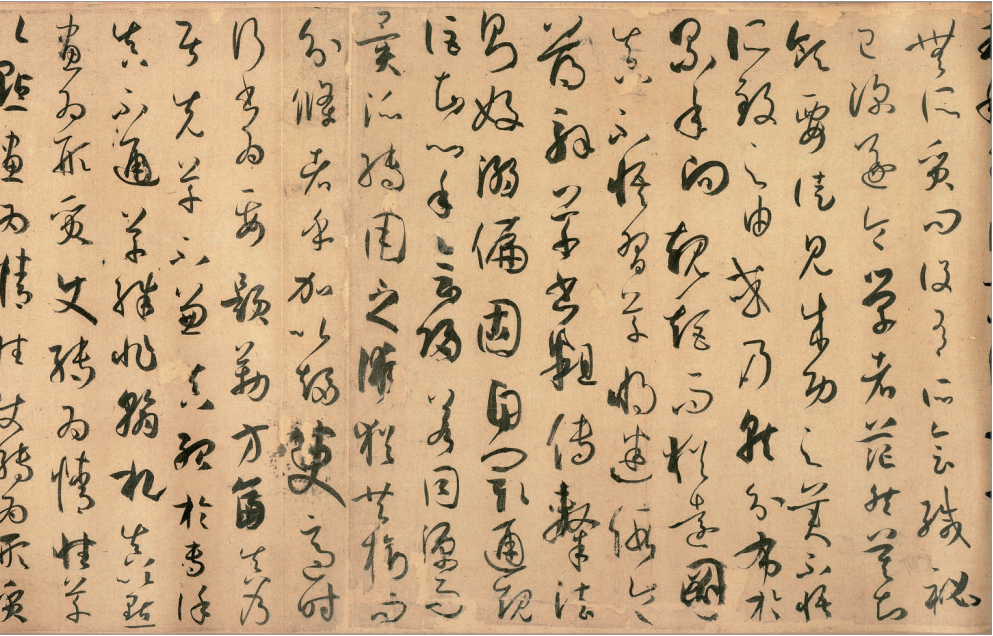 無所質問設有所會緘秘
已深遂令學者茫然莫知
領要徒見成功之美不悟
所致之由或乃就分布於
累年向規矩而猶遠圖
真不悟習草將迷假令
薄解草書粗傳隸法
則好溺偏固自閡通規
詎知心手會歸若同源而
異派轉用之術猶共樹而
分條者乎加以趨變適時
行書為要題勒方畐真乃
居先草不兼真殆於專謹
真不通草殊非翰札真以點
畫為形質使轉為情性草
以點畫為情性使轉為形質